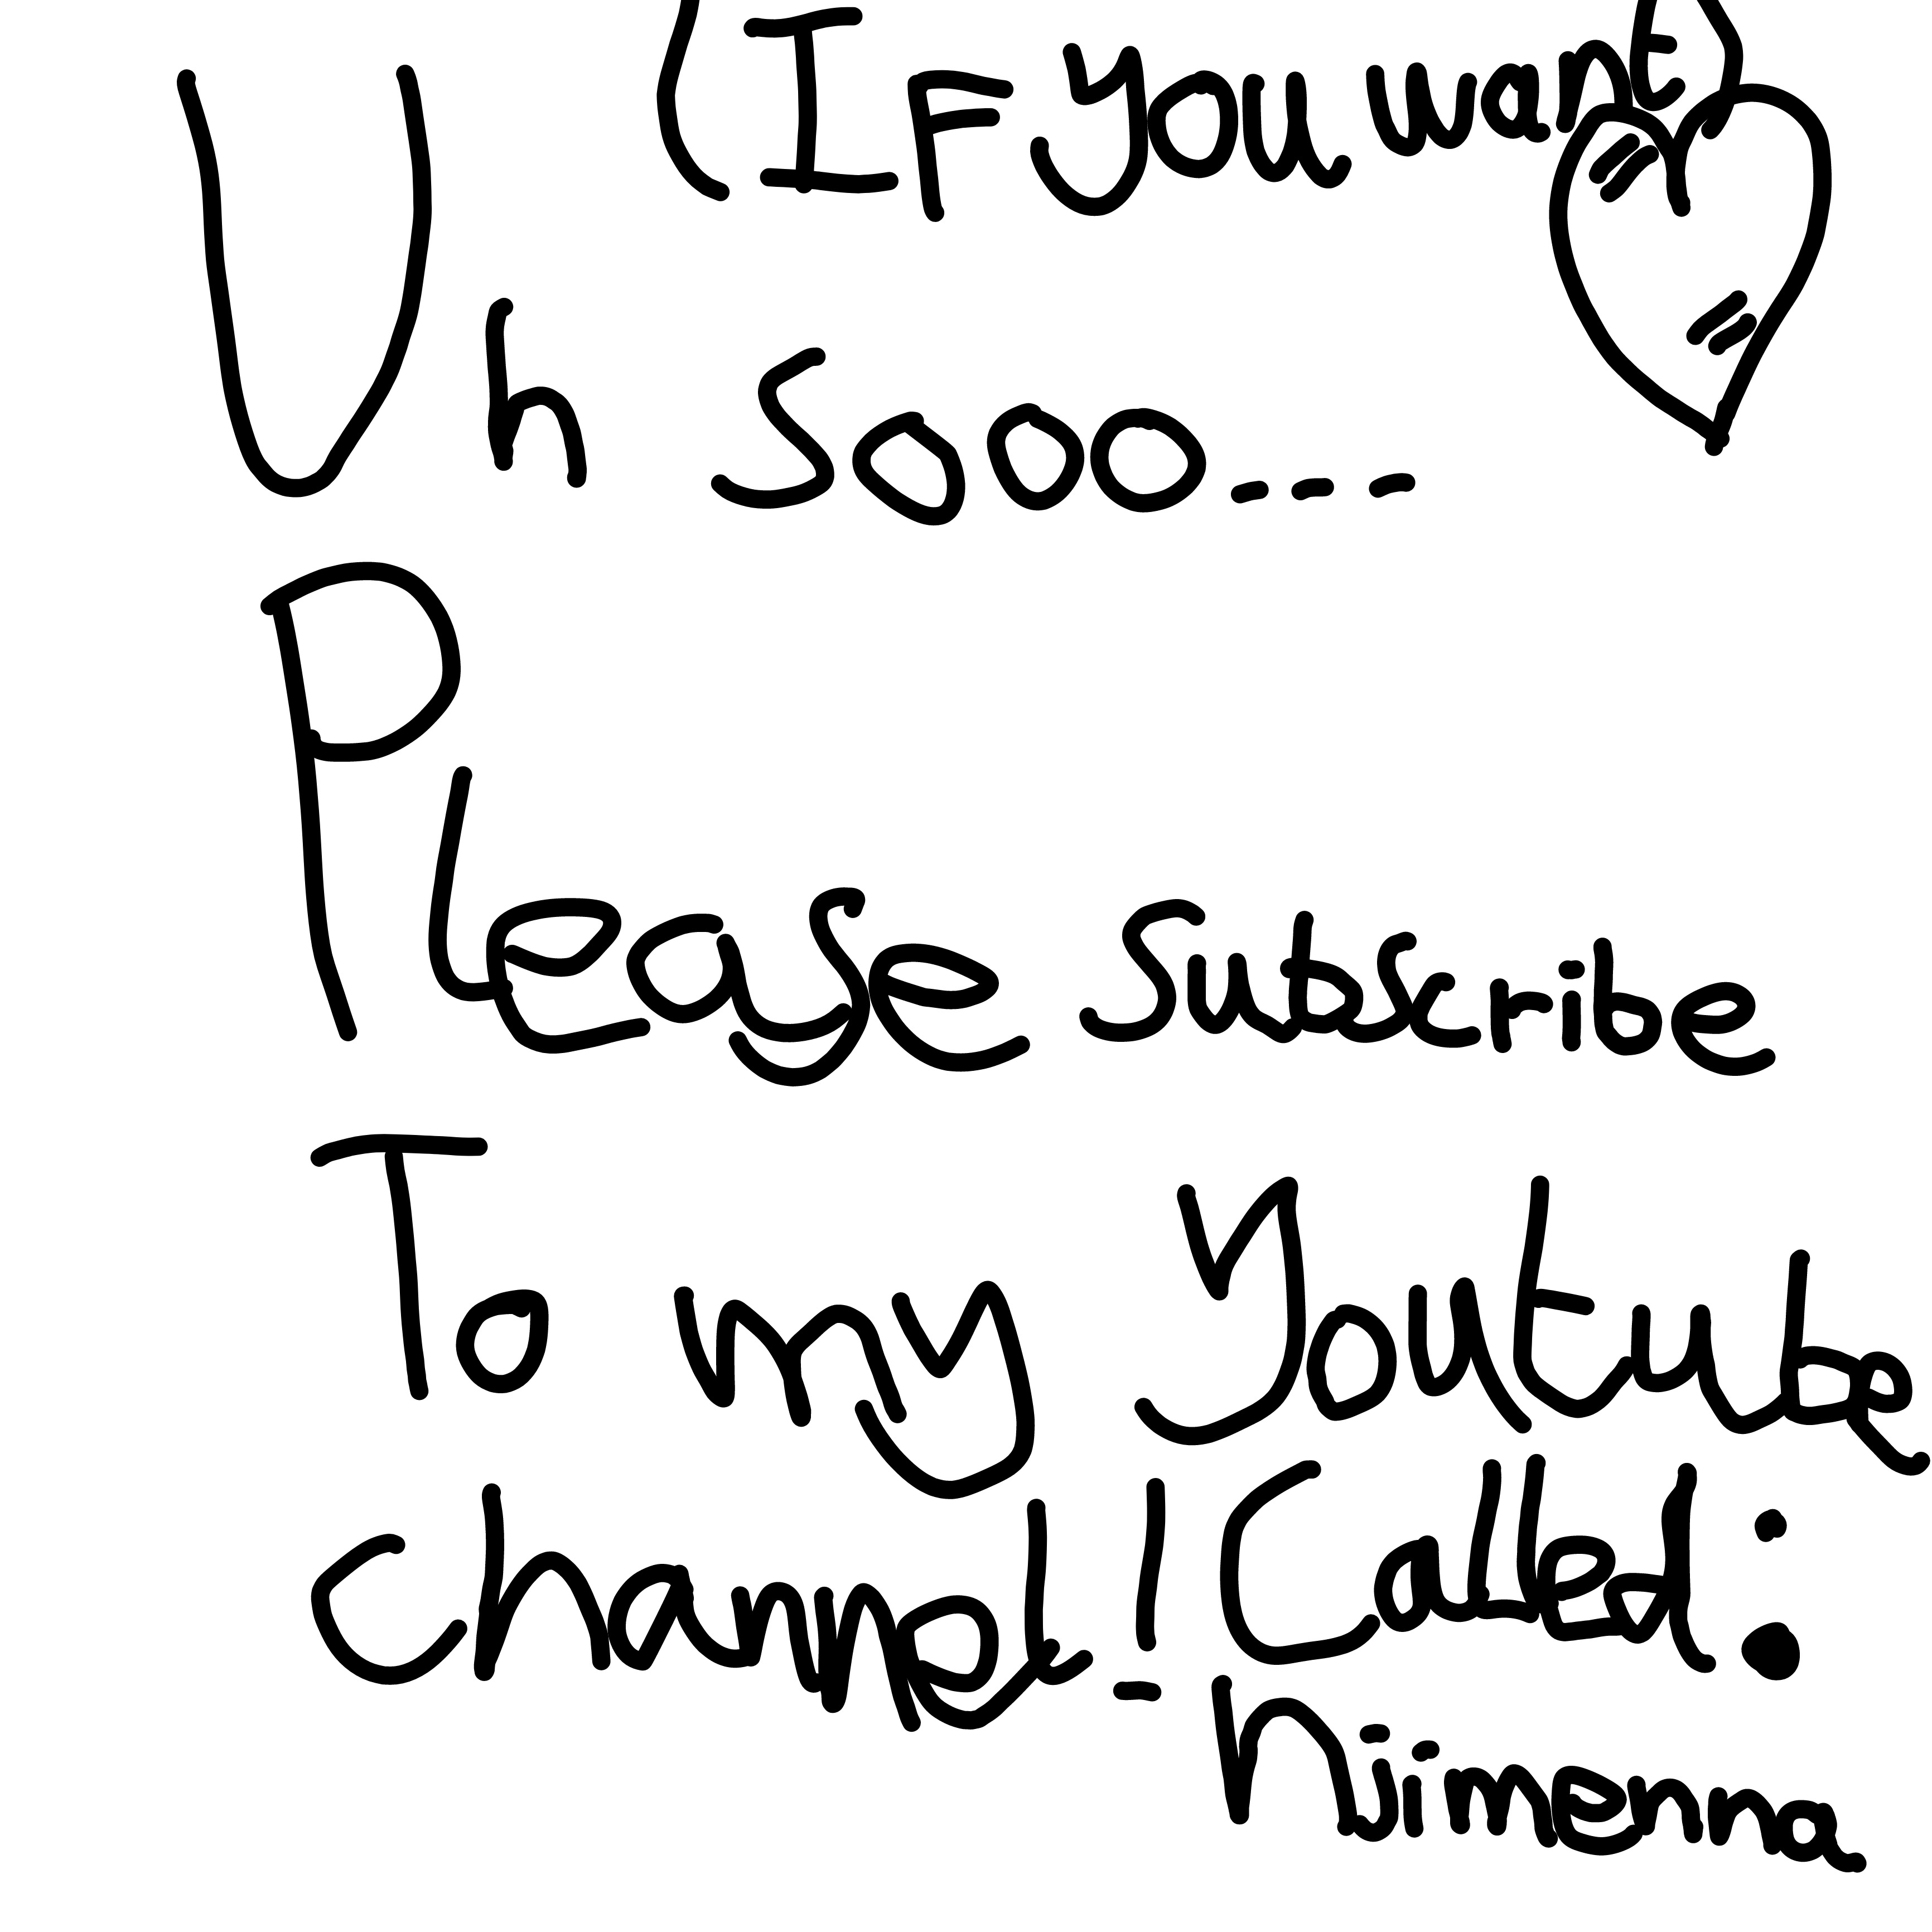 (If you want)
Uh sooo...
Please subscribe
To my Youtube
channel! Called:
- njimenna